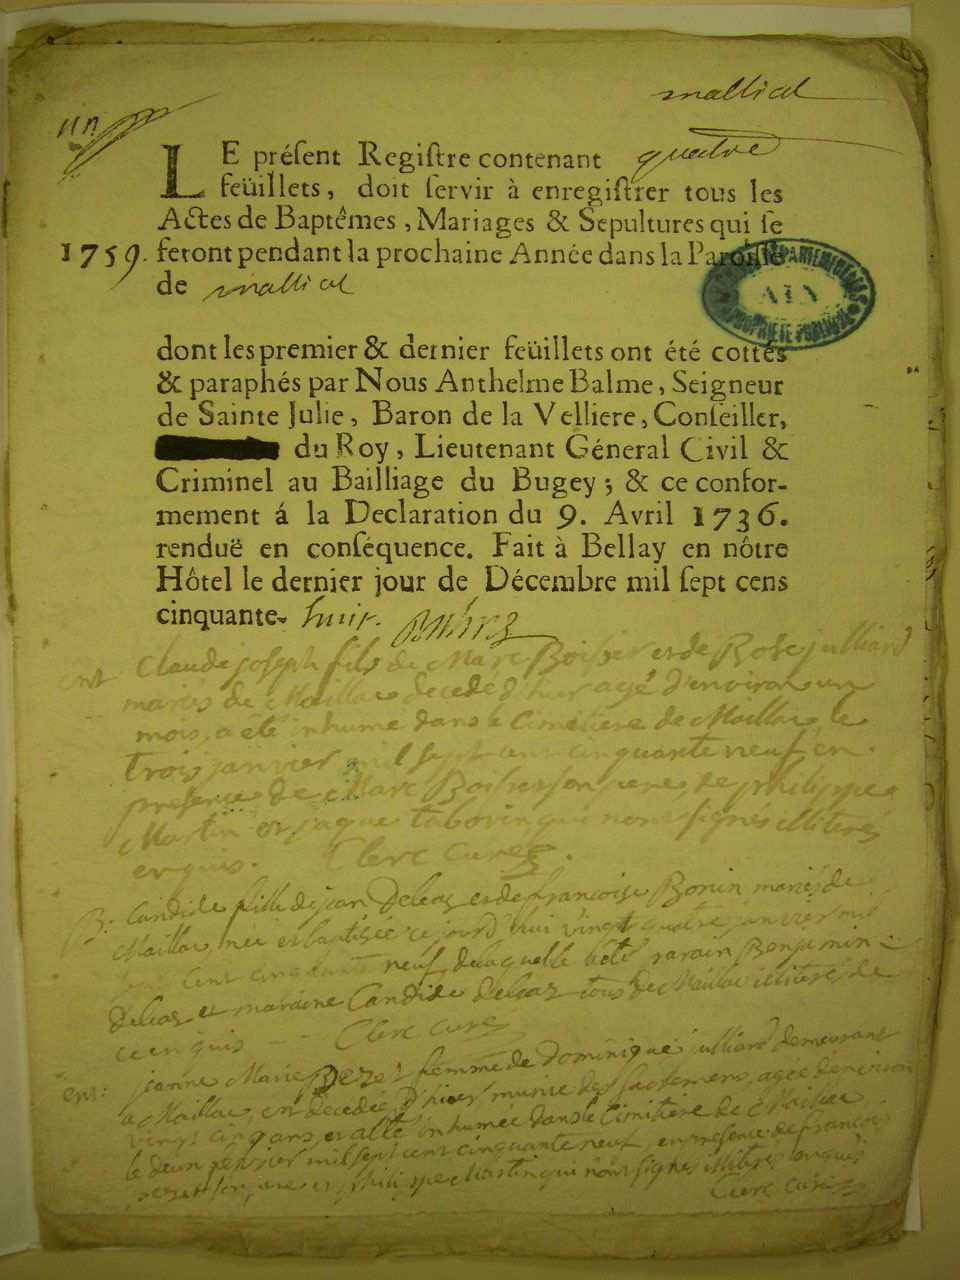 malliat
un
LE préſent Regiſtre contenant quatre
feüillets, doit ſervir à enregiſtrer tous les
Actes de Baptêmes, Mariages & Sepultures qui ſe
1759. feront pendant la prochaine Année dans la Paroiſſe
de malliat
AIN
PROPRIETE PUBLIQUE
dont les premier & dernier feüillets ont été cottés
& paraphés par Nous Anthelme Balme, Seigneur
de Sainte Julie, Baron de la Velliere, Conſeiller,
du Roy, Lieutenant Général Civil &
Criminel au Bailliage du Bugey; & ce confor-
mement á la Declaration du 9. Avril 1736.
renduë en conſéquence. Fait à Bellay en nôtre
Hôtel le dernier jour de Décembre mil ſept cens
cinquante huit.
ent Claude joseph fils de Marc Boisier et de Rose julliard
mariés de Maillac decedé d'hier agé d'environ un
mois, a eté inhumé dans le Cimetiere de Maillac le
trois janvier mil sept cent cinquante neuf en
presence de Marc Boisier son pere de philippe
Martin et jaque tabovin qui n'ont signés illiteres
enquis. Clerc curé
B: Candide fille de jean Deleaz et de francoise Bonin mariés de
Maillac, née et baptisée ce jourd'hui vingt quatre janvier mil
sept cent cinquante neuf delaquelle a eté parain Benjamin
Deleaz et maraine Candide deleaz tous de Maillac illitérés de
ce enquis Clerc curé
ent: jeanne Marie femme de Dominique julliard demeurant
a Maillac, est decedée d'hier munie des sacremens, agée d'environ
vingt cinq ans, et a eté inhumée dans le Cimitiére de Maillac
le deux mil sept cent cinquante neuf, en presence de francois
son pere et philippe Martin qui n'ont signés illiteres enquis
Clerc curé